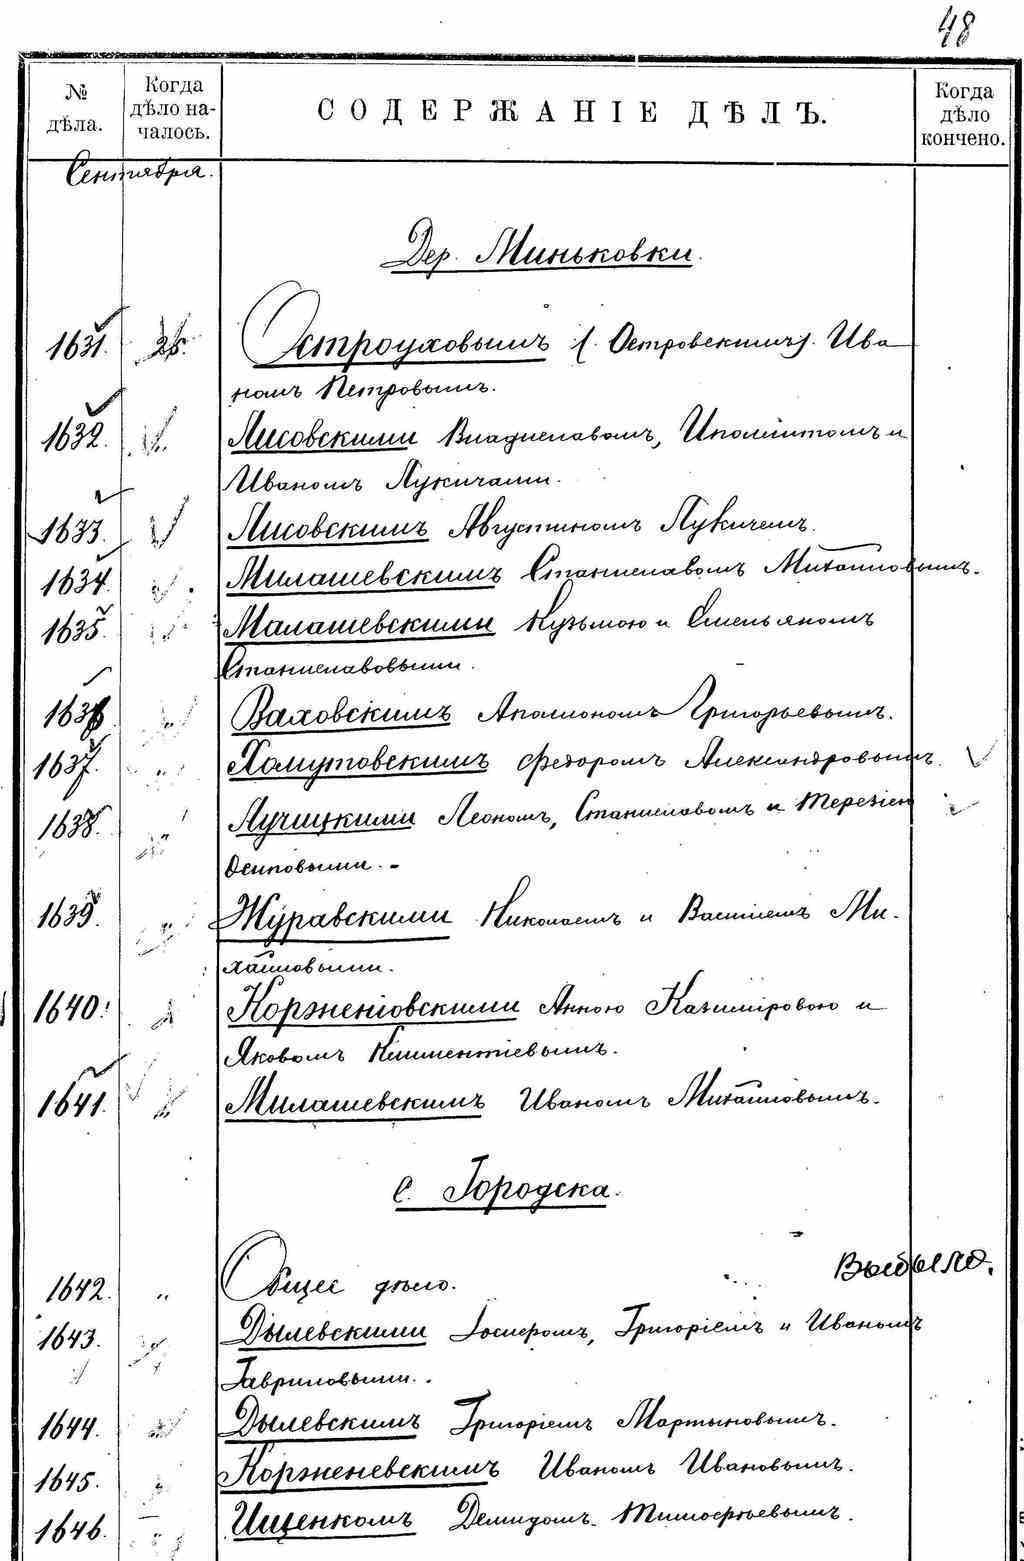 48
№ дѣла. Когда дѣло на-чалось. СОДЕРЖАНІЕ ДѢЛЪ. Когда дѣло кончено.
Сентября.
Дер. Миньковки.
1631. 26. Остроуховымъ (Островскимъ). Ива
номъ Петровымъ.
1632. Лисовскими Владиславомъ, Иполитомъ и
Иваномъ Лукичами.
1633. Лисовскимъ Августиномъ Лукичемъ.
1634. Милашевскимъ Станиславомъ Михайловымъ.
1635. Малашевскими Кузьмою и Емельяномъ
Станиславовыми.
1636 Ваховскимъ Аполлономъ Григорьевымъ.
1637. Хомутовскимъ Федоромъ Александровымъ.
1638. Лучицкими Леономъ, Станиславомъ и Терезіею
Осиповыми.-
1639. Журавскими Николаемъ и Василіемъ Ми-
хайловыми.
1640. Корженіовскими Анною Казиміровою и
Яковомъ Климентіевымъ.
1641. Милашевскимъ Иваномъ Михайловымъ.
С. Городска.
1642. „ Общее дѣло. Выбыло.
1643. Дылевскими Іосифомъ, Григоріемъ и Иваномъ
Гавриловыми.
1644. Дылевскимъ Григоріемъ Мартыновымъ.
1645. Корженевскимъ Иваномъ Ивановымъ.
1646. Ищенкомъ Демидомъ Тимофѣевымъ.